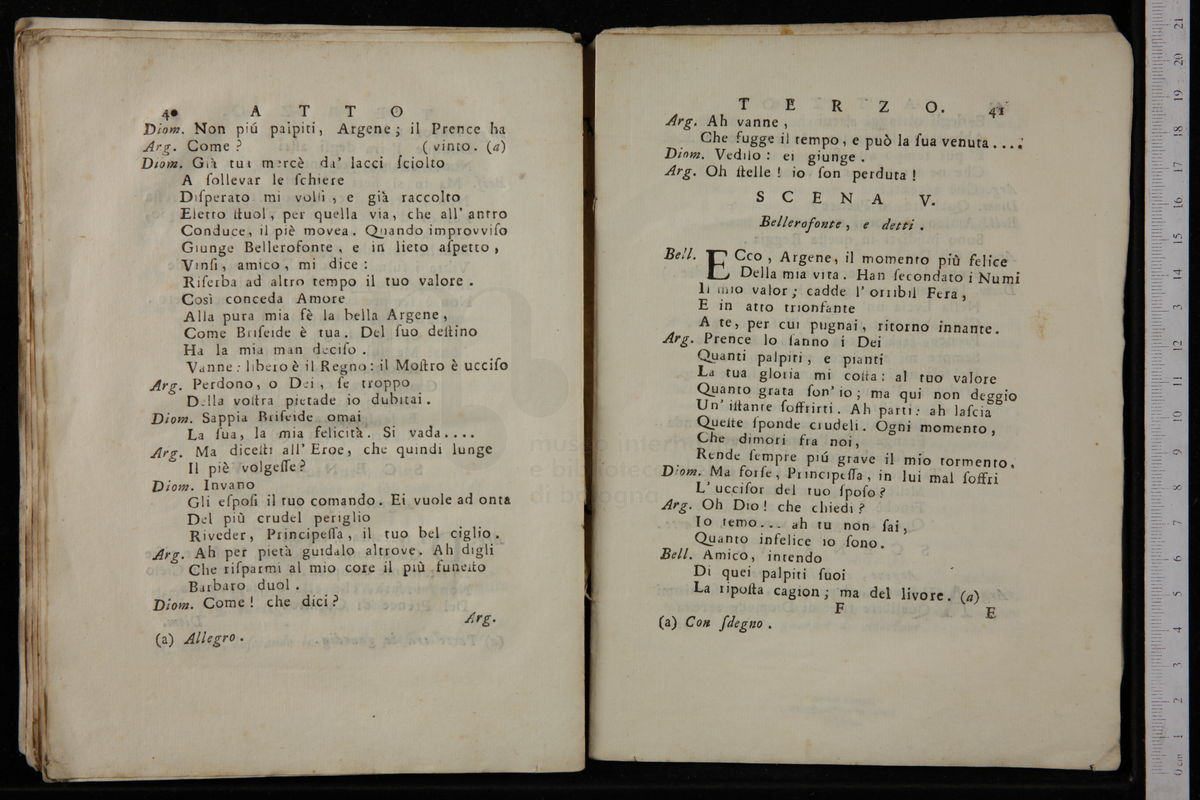 40 A T T O
Diom. Non piú palpiti, Argene; il Prence ha
Arg. Come? (vinto. (a)
Diom. Già tua mercè da' lacci ſciolto
A ſollevar le ſchiere
Diſperato mi volſi, e già raccolto
Eletto ſtuol, per quella via, che all' antro
Conduce, il piè movea. Quando improvviſo
Giunge Bellerofonte, e in lieto aſpetto,
Vinſi, amico, mi dice:
Riſerba ad altro tempo il tuo valore.
Così conceda Amore
Alla pura mia fè la bella Argene,
Come Briſeide è tua. Del ſuo deſtino
Ha la mia man deciſo.
Vanne: libero è il Regno: il Moſtro è ucciſo
Arg. Perdono, o Dei, ſe troppo
Della voſtra pietade io dubitai.
Diom. Sappia Briſeide omai
La ſua, la mia felicità. Si vada....
Arg. Ma diceſti all' Eroe, che quindi lunge
Il piè volgeſſe?
Diom. Invano
Gli eſpoſi il tuo comando. Ei vuole ad onta
Del più crudel periglio
Riveder, Principeſſa, il tuo bel ciglio.
Arg. Ah per pietà guidalo altrove. Ah digli
Che riſparmi al mio core il più funeſto
Barbaro duol.
Diom. Come! che dici?
Arg.
(a) Allegro.
T E R Z O. 41
Arg. Ah vanne,
Che fugge il tempo, e può la ſua venuta....
Diom. Vedilo: ei giunge.
Arg. Oh ſtelle! io ſon perduta!
S C E N A V.
Bellerofonte, e detti.
Bell. ECco, Argene, il momento più felice
Della mia vita. Han ſecondato i Numi
Il mio valor; cadde l' orribil Fera,
E in atto trionfante
A te, per cui pugnai, ritorno innante.
Arg. Prence lo ſanno i Dei
Quanti palpiti, e pianti
La tua gloria mi coſta: al tuo valore
Quanto grata ſon' io; ma qui non deggio
Un' iſtante ſoffrirti. Ah parti: ah laſcia
Queſte ſponde crudeli. Ogni momento,
Che dimori fra noi,
Rende ſempre piú grave il mio tormento.
Diom. Ma forſe, Principeſſa, in lui mal ſoffri
L' ucciſor del tuo ſpoſo?
Arg. Oh Dio! che chiedi?
Io temo... ah tu non ſai,
Quanto infelice io ſono.
Bell. Amico, intendo
Di quei palpiti ſuoi
La ripoſta cagion; ma del livore. (a)
F E
(a) Con ſdegno.